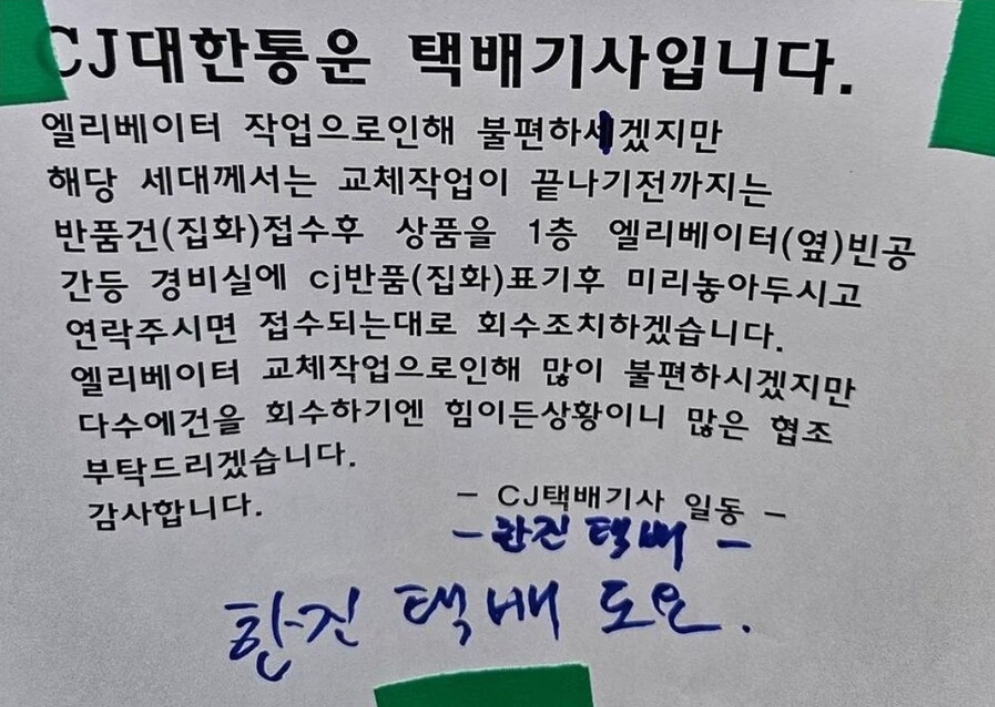 CJ대한통운 택배기사입니다.
엘리베이터 작업으로인해 불편하시겠지만
해당 세대께서는 교체작업이 끝나기전까지는
반품건(집화)접수후 상품을 1층 엘리베이터(옆)빈공
간등 경비실에 cj반품(집화)표기후 미리놓아두시고
연락주시면 접수되는대로 회수조치하겠습니다.
엘리베이터 교체작업으로인해 많이 불편하시겠지만
다수에건을 회수하기엔 힘이든상황이니 많은 협조
부탁드리겠습니다.
감사합니다.
- CJ택배기사 일동 -
- 한진 택배 -
한진 택배 도요.